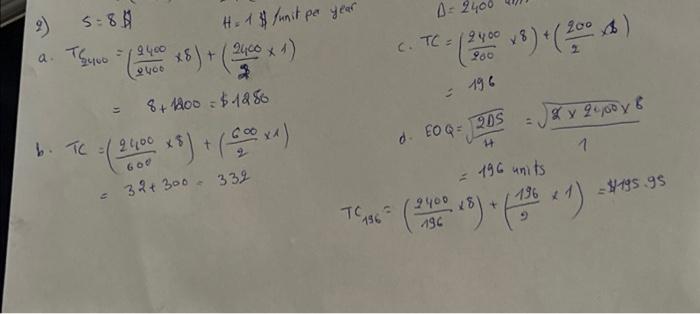 2) S = 8 $ H = 1 $ /unit per year D = 2400
a. TC2400 = (2400/2400 × 8) + (2400/2 × 1)
= 8 + 1200 = $1280
b. TC = (2400/600 × 8) + (600/2 × 1)
= 32 + 300 = 332
c. TC = (2400/200 × 8) + (200/2 × 1)
= 196
d. EOQ = √(2DS/H) = √(2 × 2400 × 8/1)
= 196 units
TC196 = (2400/196 × 8) + (196/2 × 1) = $195.95